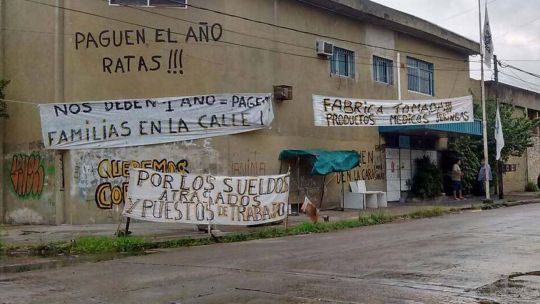 PAGUEN EL AÑO
RATAS !!!
NOS DEBEN 1 AÑO = PAGEN
FAMILIAS EN LA CALLE !
FABRICA TOMADA!!
PRODUCTOS MEDICOS
QUEREMOS
POR LOS SUELDOS
ATRASADOS
Y PUESTOS DE TRABAJO